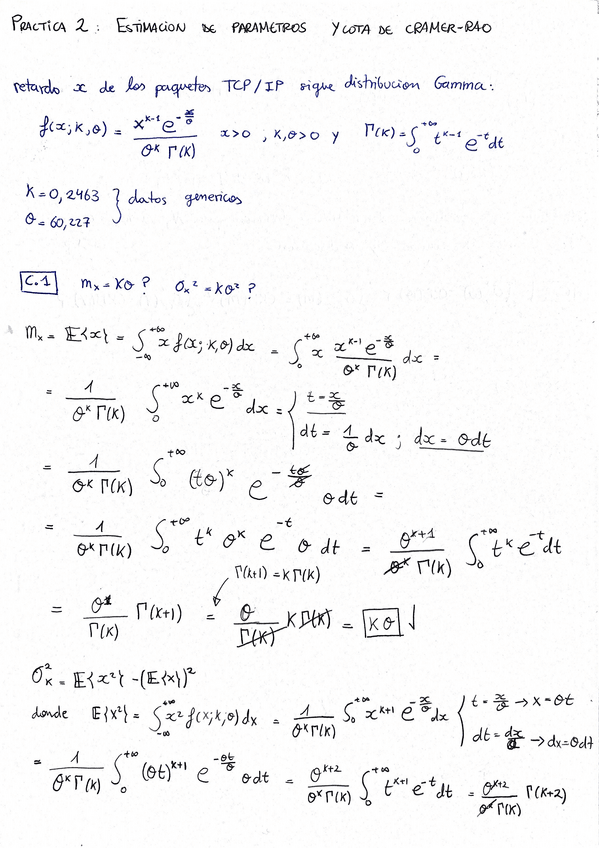 PRACTICA 2: ESTIMACION DE PARAMETROS Y COTA DE CRAMER-RAO
retardo x de los paquetes TCP/IP sigue distribucion Gamma:
f(x;K,θ) = x^{K-1} e^{-x/θ} / θ^K Γ(K)   x>0 , K,θ>0 y   Γ(K) = ∫_0^{+∞} t^{K-1} e^{-t} dt
K=0,2463 } datos genericos
θ=60,227
C.1   m_x = Kθ ?   σ_x² = Kθ² ?
m_x = E{x} = ∫_{-∞}^{+∞} x f(x;K,θ) dx = ∫_0^{+∞} x x^{K-1} e^{-x/θ} / θ^K Γ(K) dx =
= 1 / θ^K Γ(K) ∫_0^{+∞} x^K e^{-x/θ} dx = { t = x/θ
dt = 1/θ dx ; dx = θdt
= 1 / θ^K Γ(K) ∫_0^{+∞} (tθ)^K e^{-tθ/θ} θdt =
= 1 / θ^K Γ(K) ∫_0^{+∞} t^K θ^K e^{-t} θ dt = θ^{K+1} / θ^K Γ(K) ∫_0^{+∞} t^K e^{-t} dt
Γ(K+1) = KΓ(K)
= θ^1 / Γ(K) Γ(K+1) = θ / Γ(K) K Γ(K) = Kθ ↓
σ_x² = E{x²} - (E{x})²
donde E{x²} = ∫_{-∞}^{+∞} x² f(x;K,θ) dx = 1 / θ^K Γ(K) ∫_0^{+∞} x^{K+1} e^{-x/θ} dx { t = x/θ → x = θt
dt = dx/θ → dx=θdt
= 1 / θ^K Γ(K) ∫_0^{+∞} (θt)^{K+1} e^{-θt/θ} θdt = θ^{K+2} / θ^K Γ(K) ∫_0^{+∞} t^{K+1} e^{-t} dt = θ^{K+2} / θ^K Γ(K) Γ(K+2)